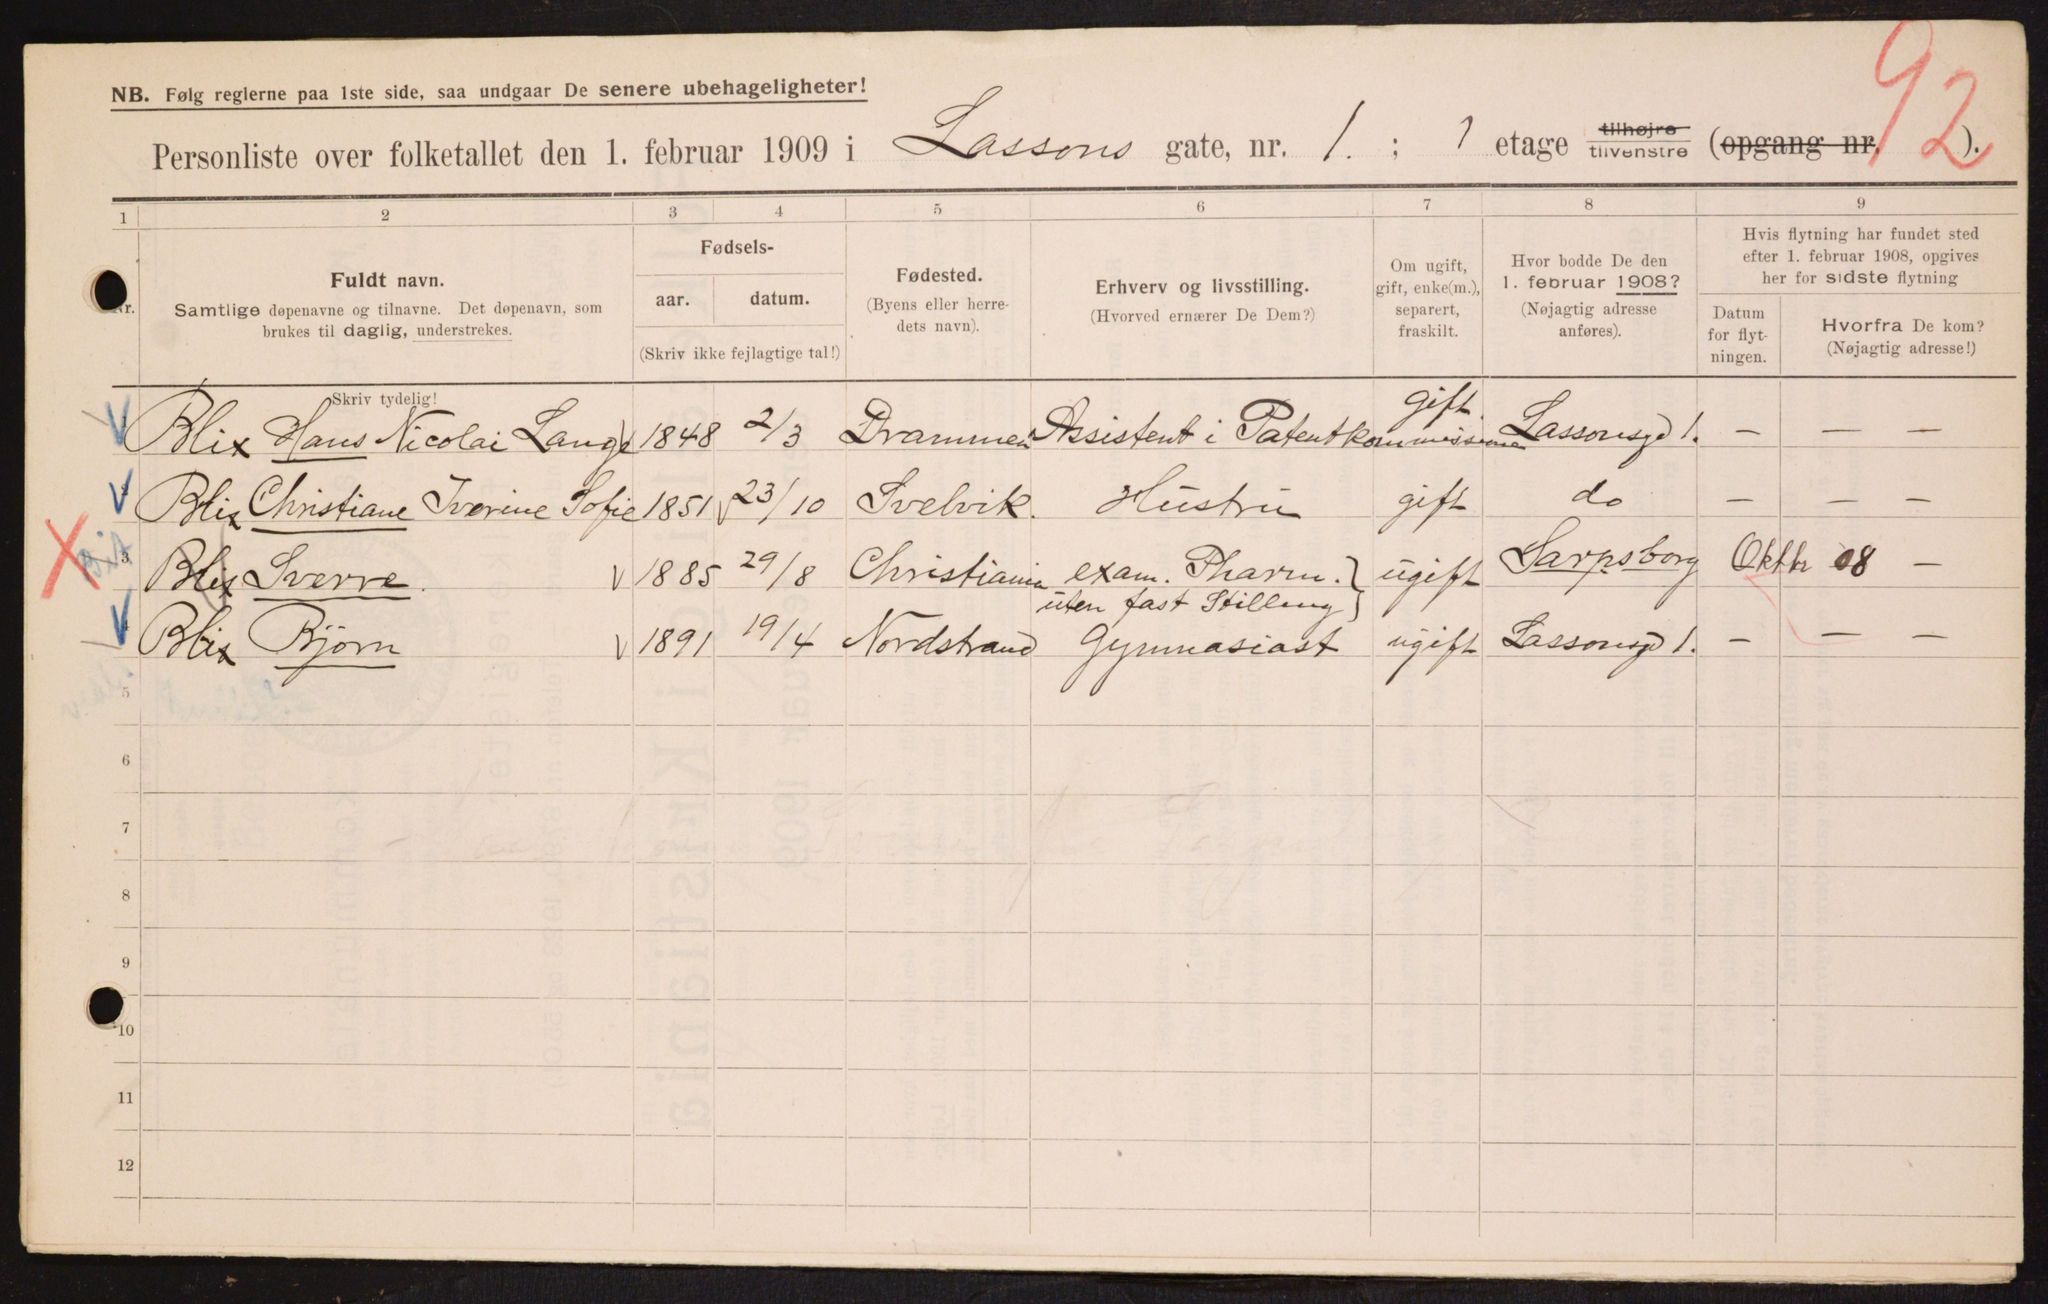 NB. Følg reglerne paa 1ste side, saa undgaar De senere ubehageligheter!
92
Personliste over folketallet den 1. februar 1909 i Lassons gate, nr. 1. ; 1 etage tilhøjre tilvenstre (opgang nr. ).
1 2 3 4 5 6 7 8 9
Nr.
Fuldt navn.
Samtlige døpenavne og tilnavne. Det døpenavn, som
brukes til daglig, understrekes.
Skriv tydelig!
Fødsels-
aar. datum.
(Skriv ikke fejlagtige tal!)
Fødested.
(Byens eller herre-
dets navn).
Erhverv og livsstilling.
(Hvorved ernærer De Dem?)
Om ugift,
gift, enke(m.),
separert,
fraskilt.
Hvor bodde De den
1. februar 1908?
(Nøjagtig adresse
anføres).
Hvis flytning har fundet sted
efter 1. februar 1908, opgives
her for sidste flytning
Datum
for flyt-
ningen.
Hvorfra De kom?
(Nøjagtig adresse!)
1 Blix Hans Nicolai Lange 1848 2/3 Drammen Assistent i Patentkommissionen gift Lassonsgd 1. — — —
2 Blix Christiane Iverine Sofie 1851 23/10 Svelvik. Hustru gift do — — —
3 Blix Sverre. 1885 29/8 Christiania exam. Pharm. } ugift Sarpsborg Oktbr 08 —
uten fast Stilling }
4 Blix Bjørn 1891 19/4 Nordstrand Gymnasiast ugift Lassonsgd 1. — — —
5
6
7
8
9
10
11
12